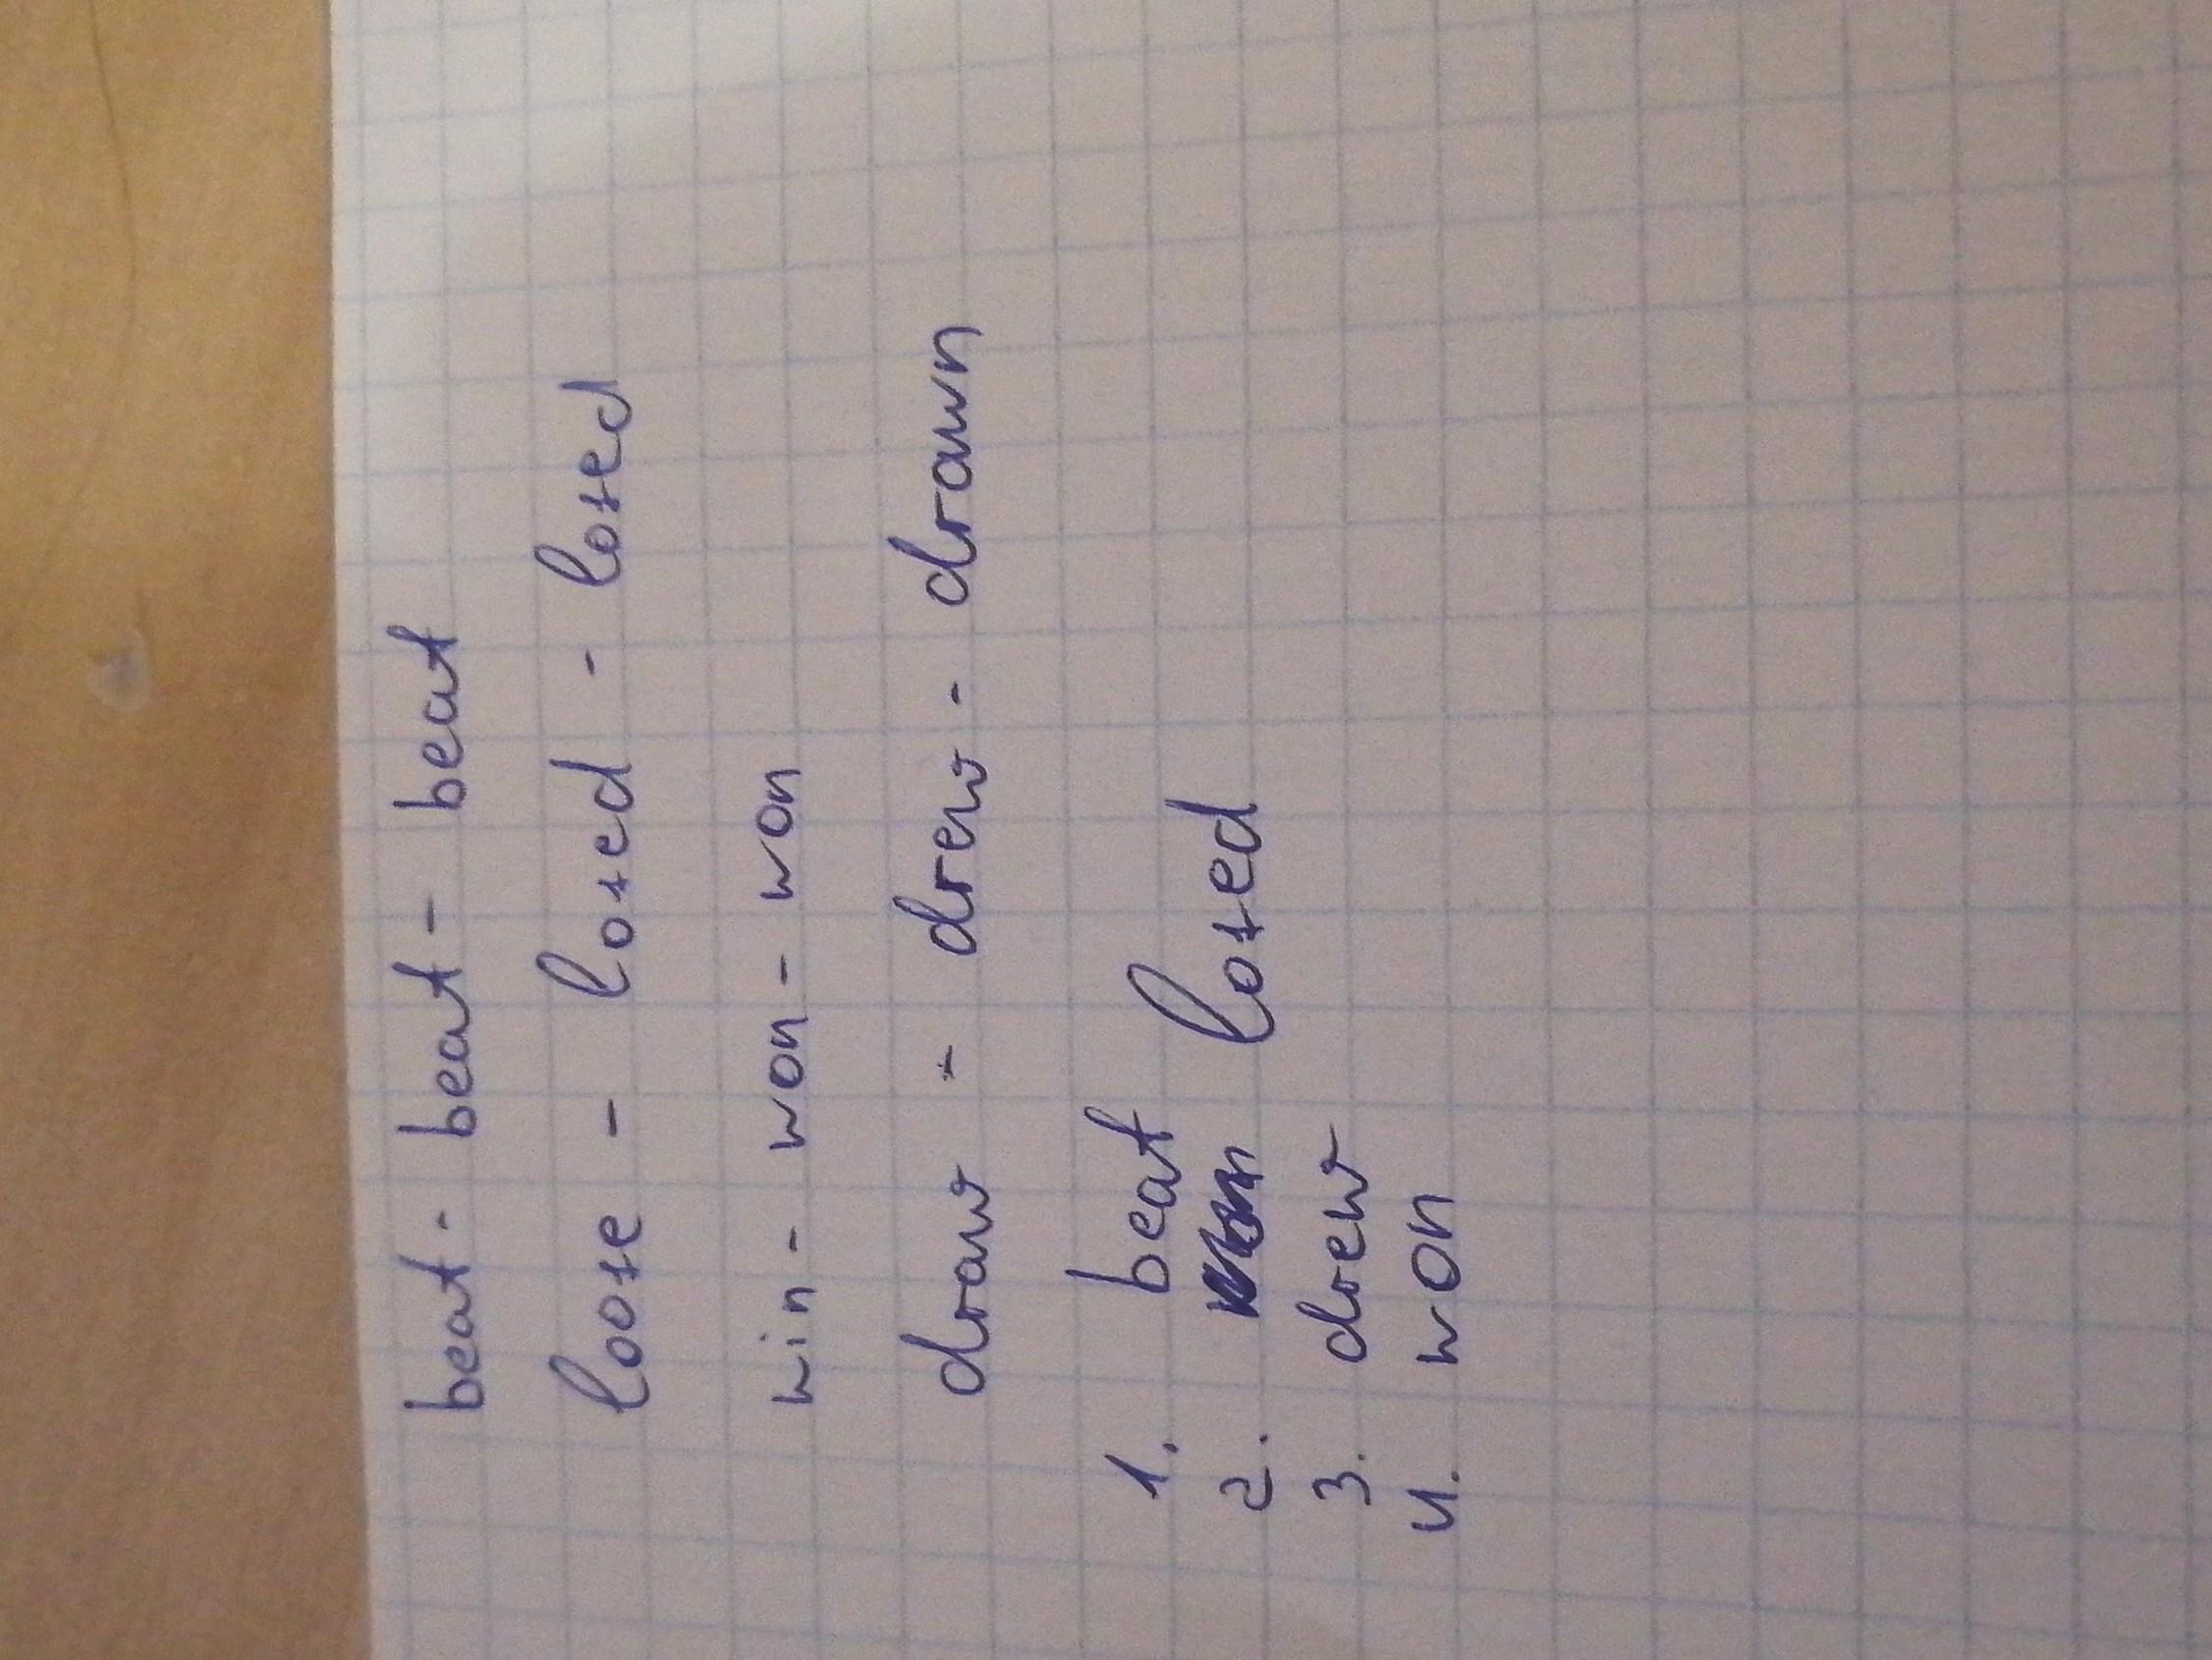 beat - beat - beat
loose - losed - losed
win - won - won
draw - drew - drawn
1. beat
2. losed
3. drew
4. won